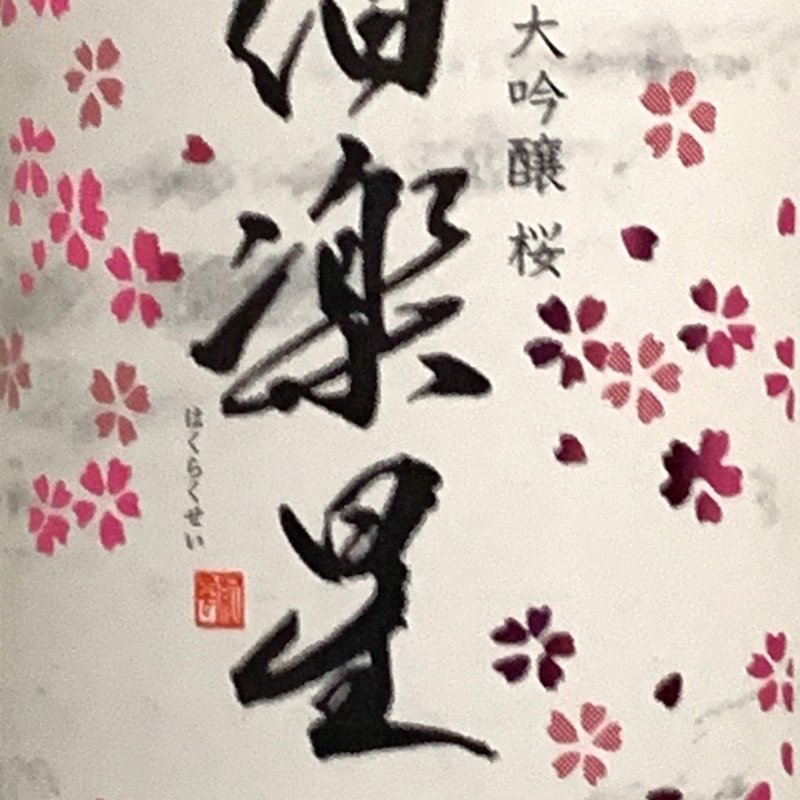 大吟醸 桜
伯楽星
はくらくせい